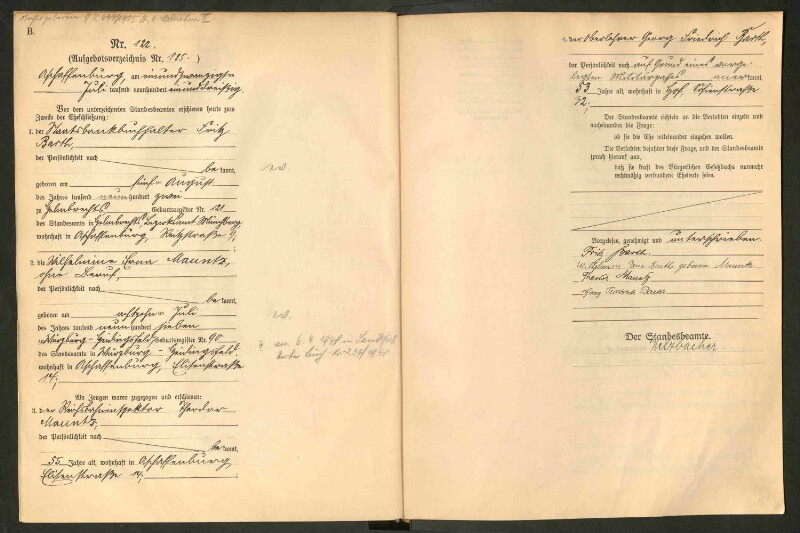 B.
Nr. 122.
(Aufgebotsverzeichnis Nr. 185. )
Aschaffenburg, am einundzwanzigsten
Juli tausend neunhundert einunddreißig.
Vor dem unterzeichneten Standesbeamten erschienen heute zum
Zwecke der Eheschließung:
1. der Staatsbankbuchhalter Fritz
Barth,
der Persönlichkeit nach
be kannt,
geboren am fünften August
des Jahres tausend neunhundert zwei
zu Helmbrechts Geburtsregister Nr. 121
des Standesamts in Helmbrechts Bezirksamt Münchberg,
wohnhaft in Aschaffenburg,
ev.
2. die Wilhelmine Erna Mauntz,
ohne Beruf,
der Persönlichkeit nach
be kannt,
geboren am achtzehnten Juli
des Jahres tausend neunhundert sieben
zu Würzburg-Heidingsfeld, Geburtsregister Nr. 90
des Standesamts in Würzburg-Heidingsfeld,
wohnhaft in Aschaffenburg, Elisenstraße
14;
ev.
am 6. 4
Als Zeugen waren zugezogen und erschienen:
3. der Reichsbahninspektor Theodor
Mauntz,
der Persönlichkeit nach
be kannt,
55 Jahre alt, wohnhaft in Aschaffenburg,
Elisenstraße 14;
4. der Oberlehrer Georg Friedrich Barth,
der Persönlichkeit nach auf Grund eines vorge-
legten Militärpasses aner kannt,
53 Jahre alt, wohnhaft in Hof,
32;
Der Standesbeamte richtete an die Verlobten einzeln und
nacheinander die Frage:
ob sie die Ehe miteinander eingehen wollen.
Die Verlobten bejahten diese Frage, und der Standesbeamte
sprach hierauf aus,
daß sie kraft des Bürgerlichen Gesetzbuchs nunmehr
rechtmäßig verbundene Eheleute seien.
Vorgelesen, genehmigt und unterschrieben.
Fritz Barth.
Wilhelmine Erna Barth, geborene Mauntz
Theodor Mauntz
Georg Friedrich Barth
Der Standesbeamte.
Welzbacher.